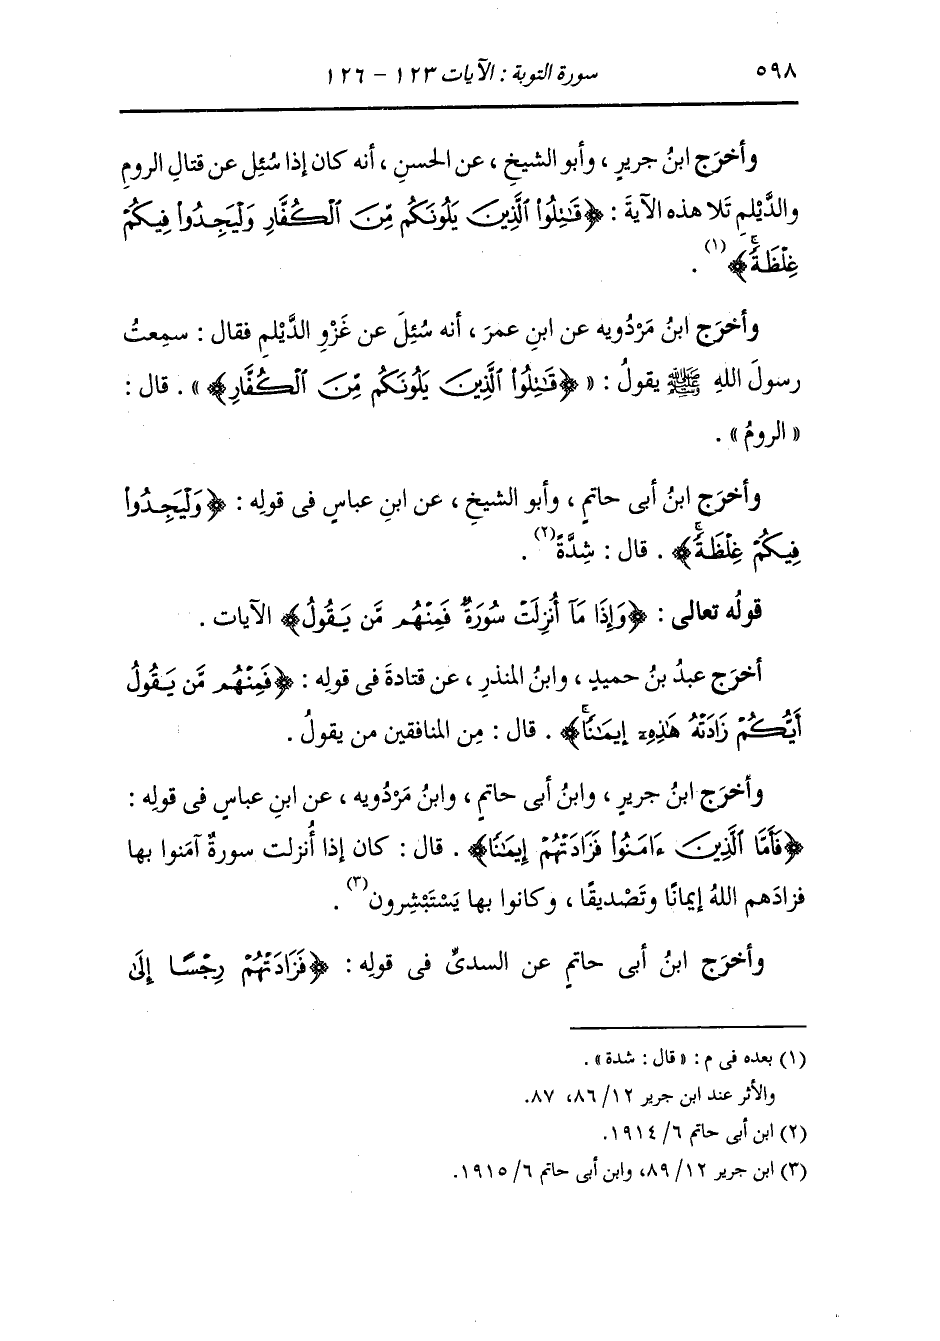 ٥٩٨ سورة التوبة : الآيات ١٢٣ - ١٢٦
وأخرَج ابنُ جريرٍ ، وأبو الشيخِ ، عن الحسنِ ، أنه كان إذا سُئِل عن قتالِ الرومِ
والدَّيْلمِ تَلا هذه الآيةَ : ﴿قَٰتِلُوا۟ ٱلَّذِينَ يَلُونَكُم مِّنَ ٱلْكُفَّارِ وَلْيَجِدُوا۟ فِيكُمْ
غِلْظَةًۚ﴾ (١) .
وأخرَج ابنُ مَرْدُويه عن ابنِ عمرَ ، أنه سُئِلَ عن غَزْوِ الدَّيْلمِ فقال : سمِعتُ
رسولَ اللهِ ﷺ يقولُ : « ﴿قَٰتِلُوا۟ ٱلَّذِينَ يَلُونَكُم مِّنَ ٱلْكُفَّارِ﴾ » . قال :
« الرومُ » .
وأخرَج ابنُ أبى حاتمٍ ، وأبو الشيخِ ، عن ابنِ عباسٍ فى قولِه : ﴿وَلْيَجِدُوا۟
فِيكُمْ غِلْظَةًۚ﴾ . قال : شِدَّةً (٢) .
قولُه تعالى : ﴿وَإِذَا مَآ أُنزِلَتْ سُورَةٌ فَمِنْهُم مَّن يَقُولُ﴾ الآيات .
أخرَج عبدُ بنُ حميدٍ ، وابنُ المنذرِ ، عن قتادةَ فى قولِه : ﴿فَمِنْهُم مَّن يَقُولُ
أَيُّكُمْ زَادَتْهُ هَٰذِهِۦٓ إِيمَٰنًاۚ﴾ . قال : مِن المنافقين من يقولُ .
وأخرَج ابنُ جريرٍ ، وابنُ أبى حاتمٍ ، وابنُ مَرْدُويه ، عن ابنِ عباسٍ فى قولِه :
﴿فَأَمَّا ٱلَّذِينَ ءَامَنُوا۟ فَزَادَتْهُمْ إِيمَٰنًا﴾ . قال : كان إذا أُنزلت سورةٌ آمَنوا بها
فزادَهم اللهُ إيمانًا وتَصْديقًا ، وكانوا بها يَسْتَبْشِرون (٣) .
وأخرَج ابنُ أبى حاتمٍ عن السدىِّ فى قولِه : ﴿فَزَادَتْهُمْ رِجْسًا إِلَىٰ
(١) بعده فى م : « قال : شدة » .
والأثر عند ابن جرير ١٢/ ٨٦، ٨٧.
(٢) ابن أبى حاتم ٦/ ١٩١٤.
(٣) ابن جرير ١٢/ ٨٩، وابن أبى حاتم ٦/ ١٩١٥.